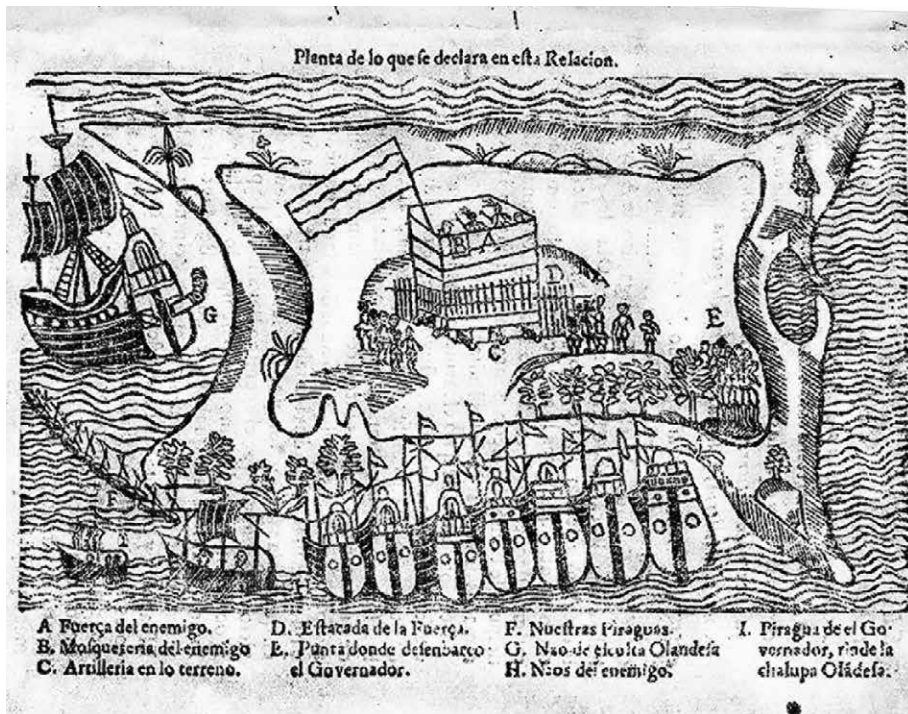 Planta de lo que se declara en esta Relacion.
B A
D
G
E
C
F
H
A Fuerça del enemigo.
B. Mosqueteria del enemigo
C. Artilleria en lo terreno.
D. Estacada de la Fuerça.
E. Punta donde desenbarco
el Governador.
F. Nuestras Piraguas.
G. Nao de escolta Olandesa
H. Naos del enemigo.
I. Piragua de el Go-
vernador, rinde la
chalupa Oládesa.